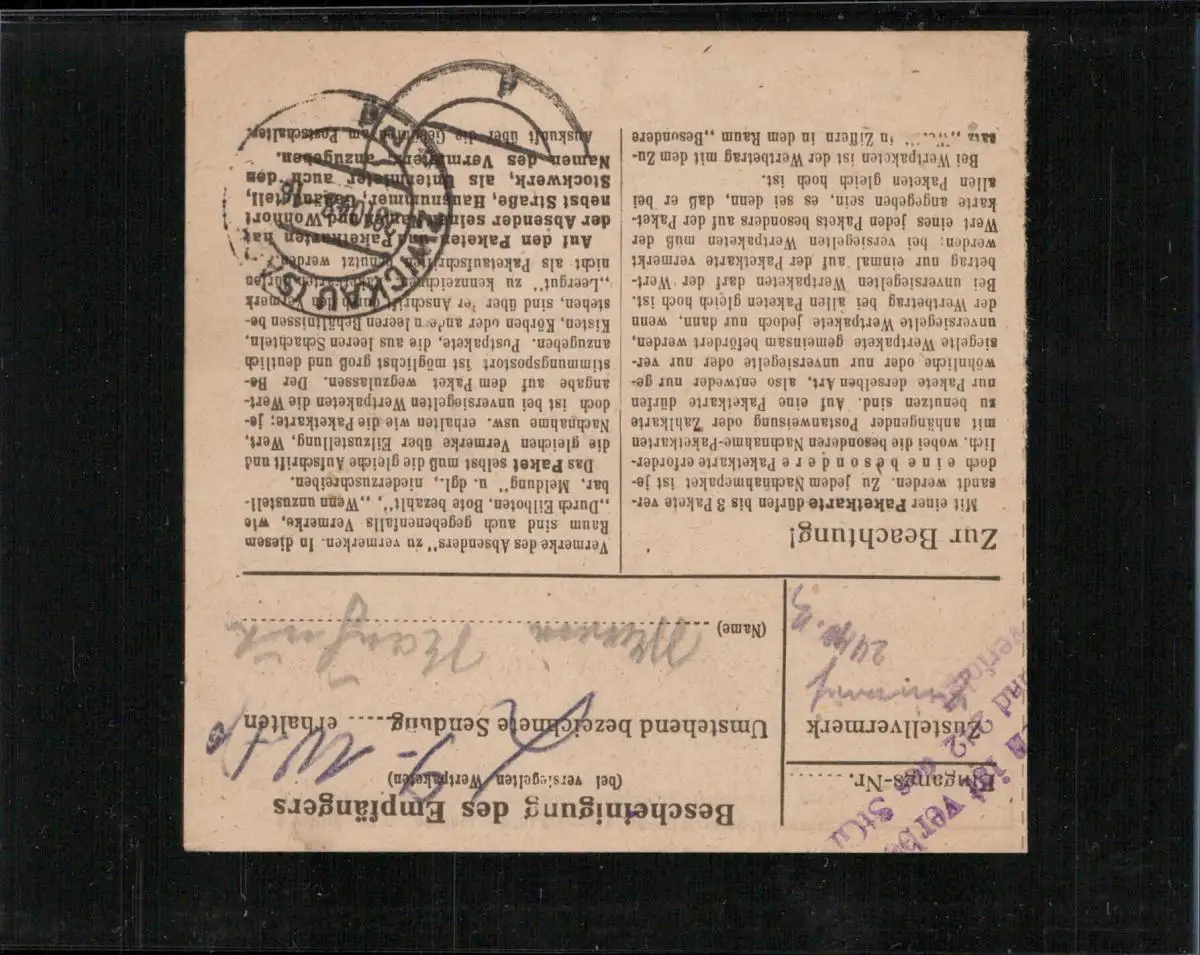 Bescheinigung des Empfängers
(bei versiegelten Wertpaketen)
Umstehend bezeichnete Sendung erhalten
(Name)
Eingangs-Nr.
Zustellvermerk
Zur Beachtung!
Mit einer Paketkarte dürfen bis 3 Pakete ver-
sandt werden. Zu jedem Nachnahmepaket ist je-
doch eine besondere Paketkarte erforder-
lich, wobei die besonderen Nachnahme-Paketkarten
mit anhängender Postanweisung oder Zahlkarte
zu benutzen sind. Auf eine Paketkarte dürfen
nur Pakete derselben Art, also entweder nur ge-
wöhnliche oder nur unversiegelte oder nur ver-
siegelte Wertpakete gemeinsam befördert werden,
unversiegelte Wertpakete jedoch nur dann, wenn
der Wertbetrag bei allen Paketen gleich hoch ist.
Bei unversiegelten Wertpaketen darf der Wert-
betrag nur einmal auf der Paketkarte vermerkt
werden; bei versiegelten Wertpaketen muß der
Wert eines jeden Pakets besonders auf der Paket-
karte angegeben sein, es sei denn, daß er bei
allen Paketen gleich hoch ist.
Bei Wertpaketen ist der Wertbetrag mit dem Zu-
satz in Ziffern in dem Raum „Besondere
Vermerke des Absenders" zu vermerken. In diesem
Raum sind auch gegebenenfalls Vermerke, wie
„Durch Eilboten, Bote bezahlt", „Wenn unzustell-
bar, Meldung" u. dgl., niederzuschreiben.
Das Paket selbst muß die gleiche Aufschrift und
die gleichen Vermerke über Eilzustellung, Wert,
Nachnahme usw. erhalten wie die Paketkarte; je-
doch ist bei unversiegelten Wertpaketen die Wert-
angabe auf dem Paket wegzulassen. Der Be-
stimmungspostort ist möglichst groß und deutlich
anzugeben. Postpakete, die aus leeren Schachteln,
Kisten, Körben oder anderen leeren Behältnissen be-
stehen, sind über der Anschrift durch den Vermerk
„Leergut" zu kennzeichnen. Paketkarten dürfen
nicht als Paketaufschriften benutzt werden.
Auf den Paketen und Paketkarten hat
der Absender seinen Namen und Wohnort
nebst Straße, Hausnummer, Gebäudeteil,
Stockwerk, als Untermieter auch den
Namen des Vermieters anzugeben.
Auskunft über die Gebühren am Postschalter.
ZWICKAU (SA